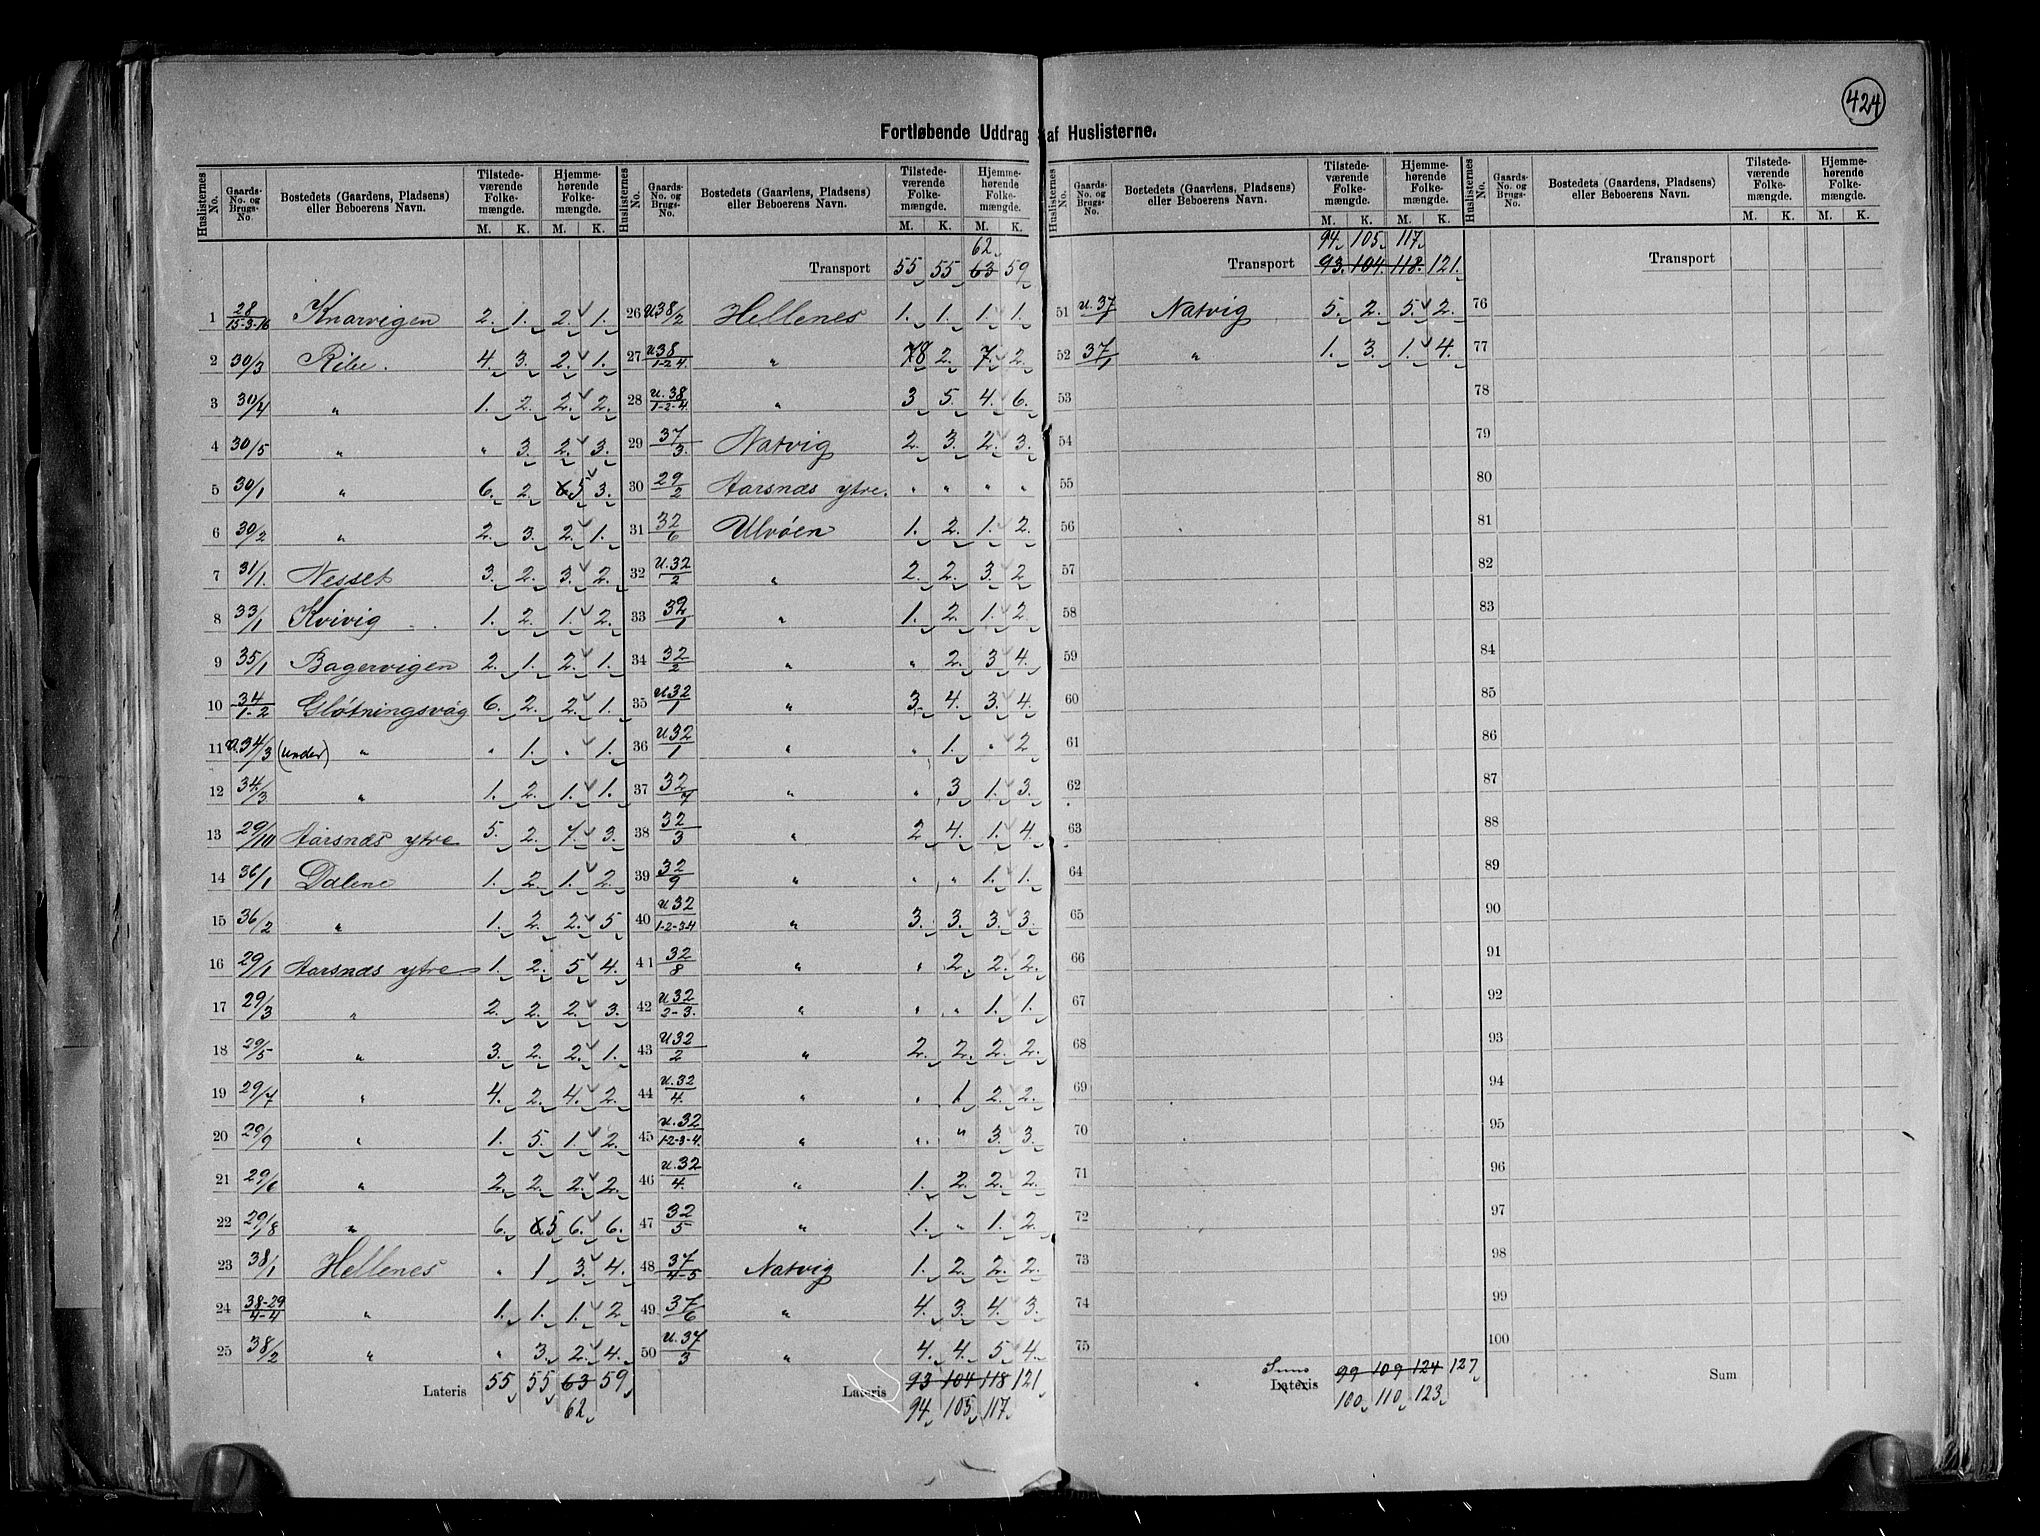 424
Fortløbende Uddrag af Huslisterne.
Huslisternes No. | Gaards-No. og Brugs-No. | Bostedets (Gaardens, Pladsens) eller Beboerens Navn. | Tilstedeværende Folkemængde. M. K. | Hjemmehørende Folkemængde. M. K.
1 28/15-3-16 Knarvigen 2. 1. 2. 1.
2 30/3 Ribe. 4. 3. 2. 1.
3 30/4 " 1. 2. 2. 2.
4 30/5 " " 3. 2. 3.
5 30/1 " 6. 2. 6. 5 3.
6 30/2 " 2. 3. 2. 1.
7 31/1. Nesset 3. 2. 3. 2.
8 33/1 Kvivig 1. 2. 1. 2.
9 35/1 Bagervigen 2. 1. 2. 1.
10 34/1-2 Gløtningsvåg 6. 2. 2. 1.
11 U.34/3 (under) " " 1. " 1.
12 34/3 " 1. 2. 1. 1.
13 29/10 Aarsnæs ytre 5. 2. 7. 3.
14 36/1 Dalene 1. 2. 1. 2.
15 36/2 " 1. 2. 2. 5
16 29/1 Aarsnæs ytre 1. 2. 5 4.
17 29/3 " 2. 2. 2. 3.
18 29/5 " 3. 2. 2. 1.
19 29/7 " 4. 2. 4. 2.
20 29/9 " 1. 5. 1. 2.
21 29/6 " 2. 2. 2. 2.
22 29/8 " 6. 6 5 6. 6.
23 38/1 Hellenes " 1 3. 4.
24 38-29/4-4 " 1. 1. 1. 2
25 38/2 " " 3. 2. 4.
Lateris 55 55 63 59
62
62
Transport 55 55 63 59
26 U38/2 Hellenes 1. 1. 1. 1.
27 U38/1-2-4. " 7 8 2. 7. 2.
28 U.38/1-2-4. " 3 5. 4. 6.
29 37/3. Natvig 2. 3. 2. 3.
30 29/2 Aarsnæs ytre. " " " "
31 32/6 Ulvöen 1. 2. 1. 2.
32 U.32/2 " 2. 2. 3. 2
33 32/1 " 1. 2. 1. 2.
34 32/2 " " 2. 3 4.
35 U.32/1 " 3. 4. 3. 4.
36 U32/1 " " 1. " 2
37 32/7 " " 3 1. 3.
38 32/3 " 2 4. 1. 4.
39 32/9 " " " 1. 1.
40 U32/1-2-3-4 " 3. 3. 3. 3.
41 32/8 " " 2. 2. 2.
42 U.32/2-3. " " " 1. 1.
43 U32/2 " 2. 2. 2. 2.
44 U.32/4. " " 1 2. 2.
45 U.32/1-2-3-4. " " " 3. 3.
46 U.32/4. " 1. 2. 2. 2.
47 32/5 " 1. " 1. 2.
48 37/4-5 Natvig 1. 2. 2. 2.
49 37/6 " 4. 3. 4. 3.
50 U.37/3 " 4. 4. 5 4.
Lateris 93 104 118 121
94 105 117
94 105 117
Transport 93. 104. 118. 121.
51 U.37/1 Natvig 5. 2. 5. 2.
52 37/1 " 1. 3. 1. 4.
53
54
55
56
57
58
59
60
61
62
63
64
65
66
67
68
69
70
71
72
73
74
75
Sum
Lateris 99 109 124 127
100 110 123
Transport
76
77
78
79
80
81
82
83
84
85
86
87
88
89
90
91
92
93
94
95
96
97
98
99
100
Sum